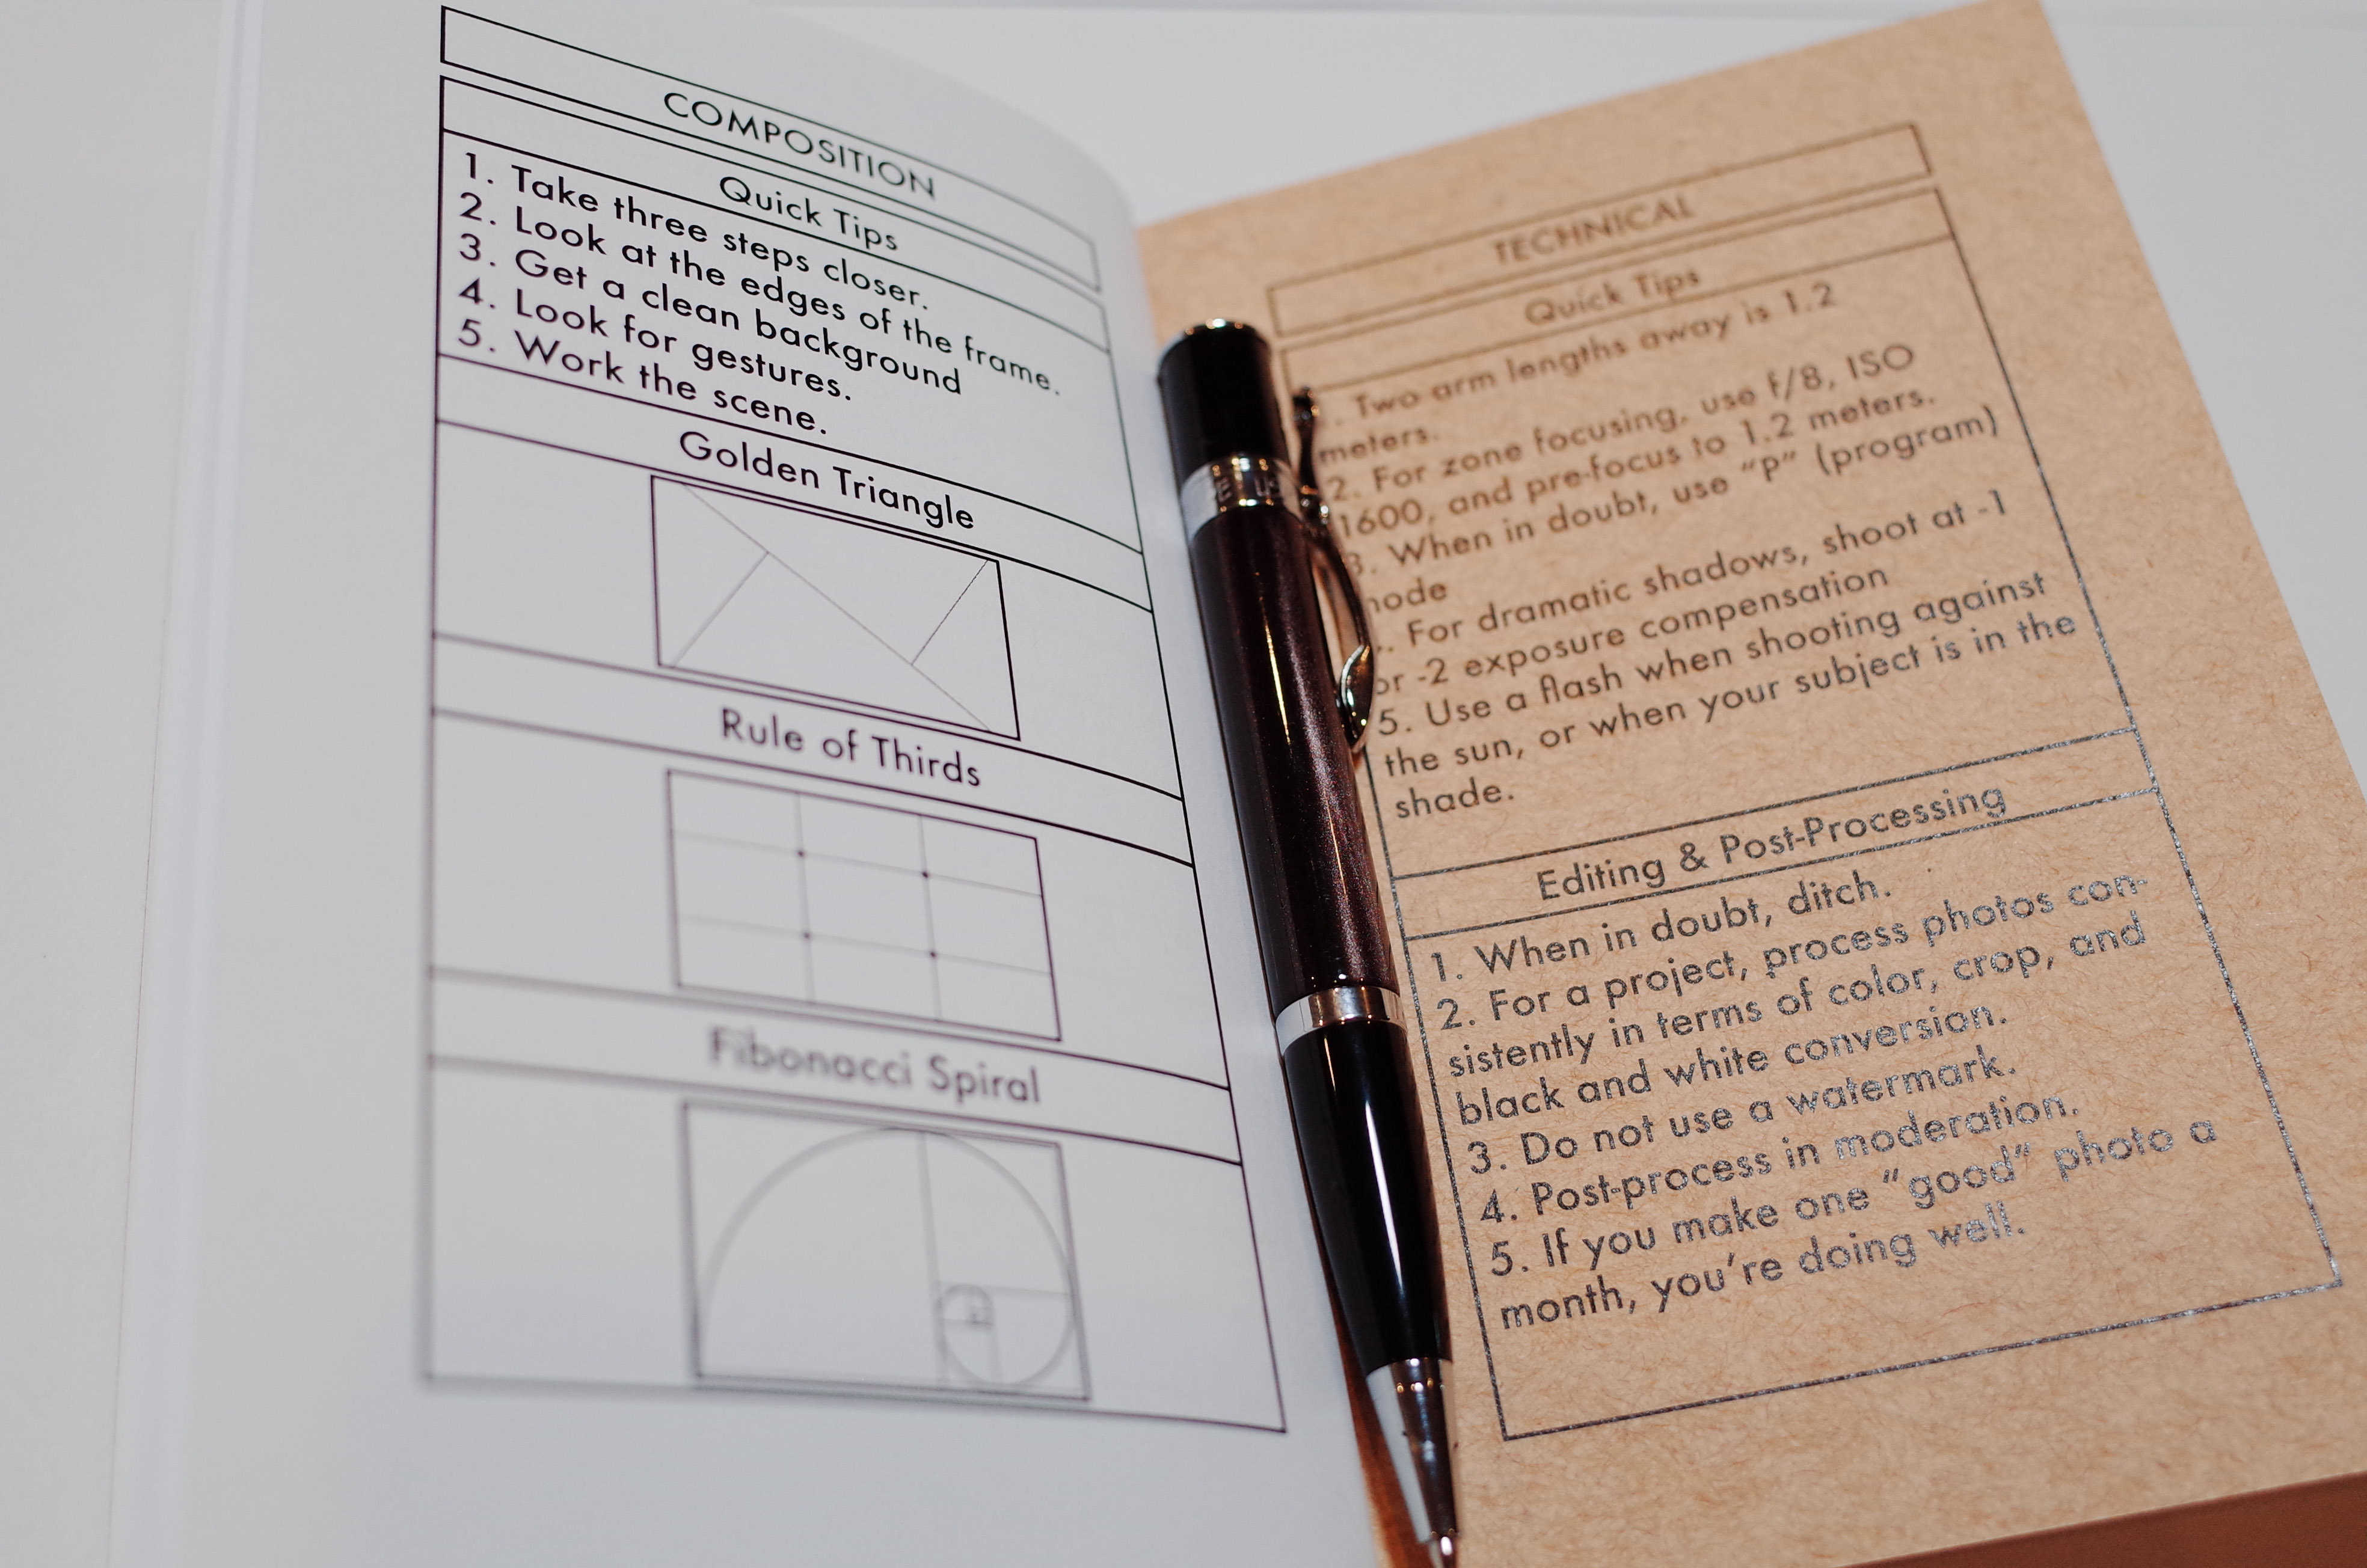 COMPOSITION
Quick Tips
1. Take three steps closer.
2. Look at the edges of the frame.
3. Get a clean background
4. Look for gestures.
5. Work the scene.
Golden Triangle
Rule of Thirds
Fibonacci Spiral
TECHNICAL
Quick Tips
. Two arm lengths away is 1.2
meters.
2. For zone focusing, use f/8, ISO
1600, and pre-focus to 1.2 meters.
3. When in doubt, use "P" (program)
ode
. For dramatic shadows, shoot at -1
or -2 exposure compensation
5. Use a flash when shooting against
the sun, or when your subject is in the
shade.
Editing & Post-Processing
1. When in doubt, ditch.
2. For a project, process photos con-
sistently in terms of color, crop, and
black and white conversion.
3. Do not use a watermark.
4. Post-process in moderation.
5. If you make one "good" photo a
month, you're doing well.